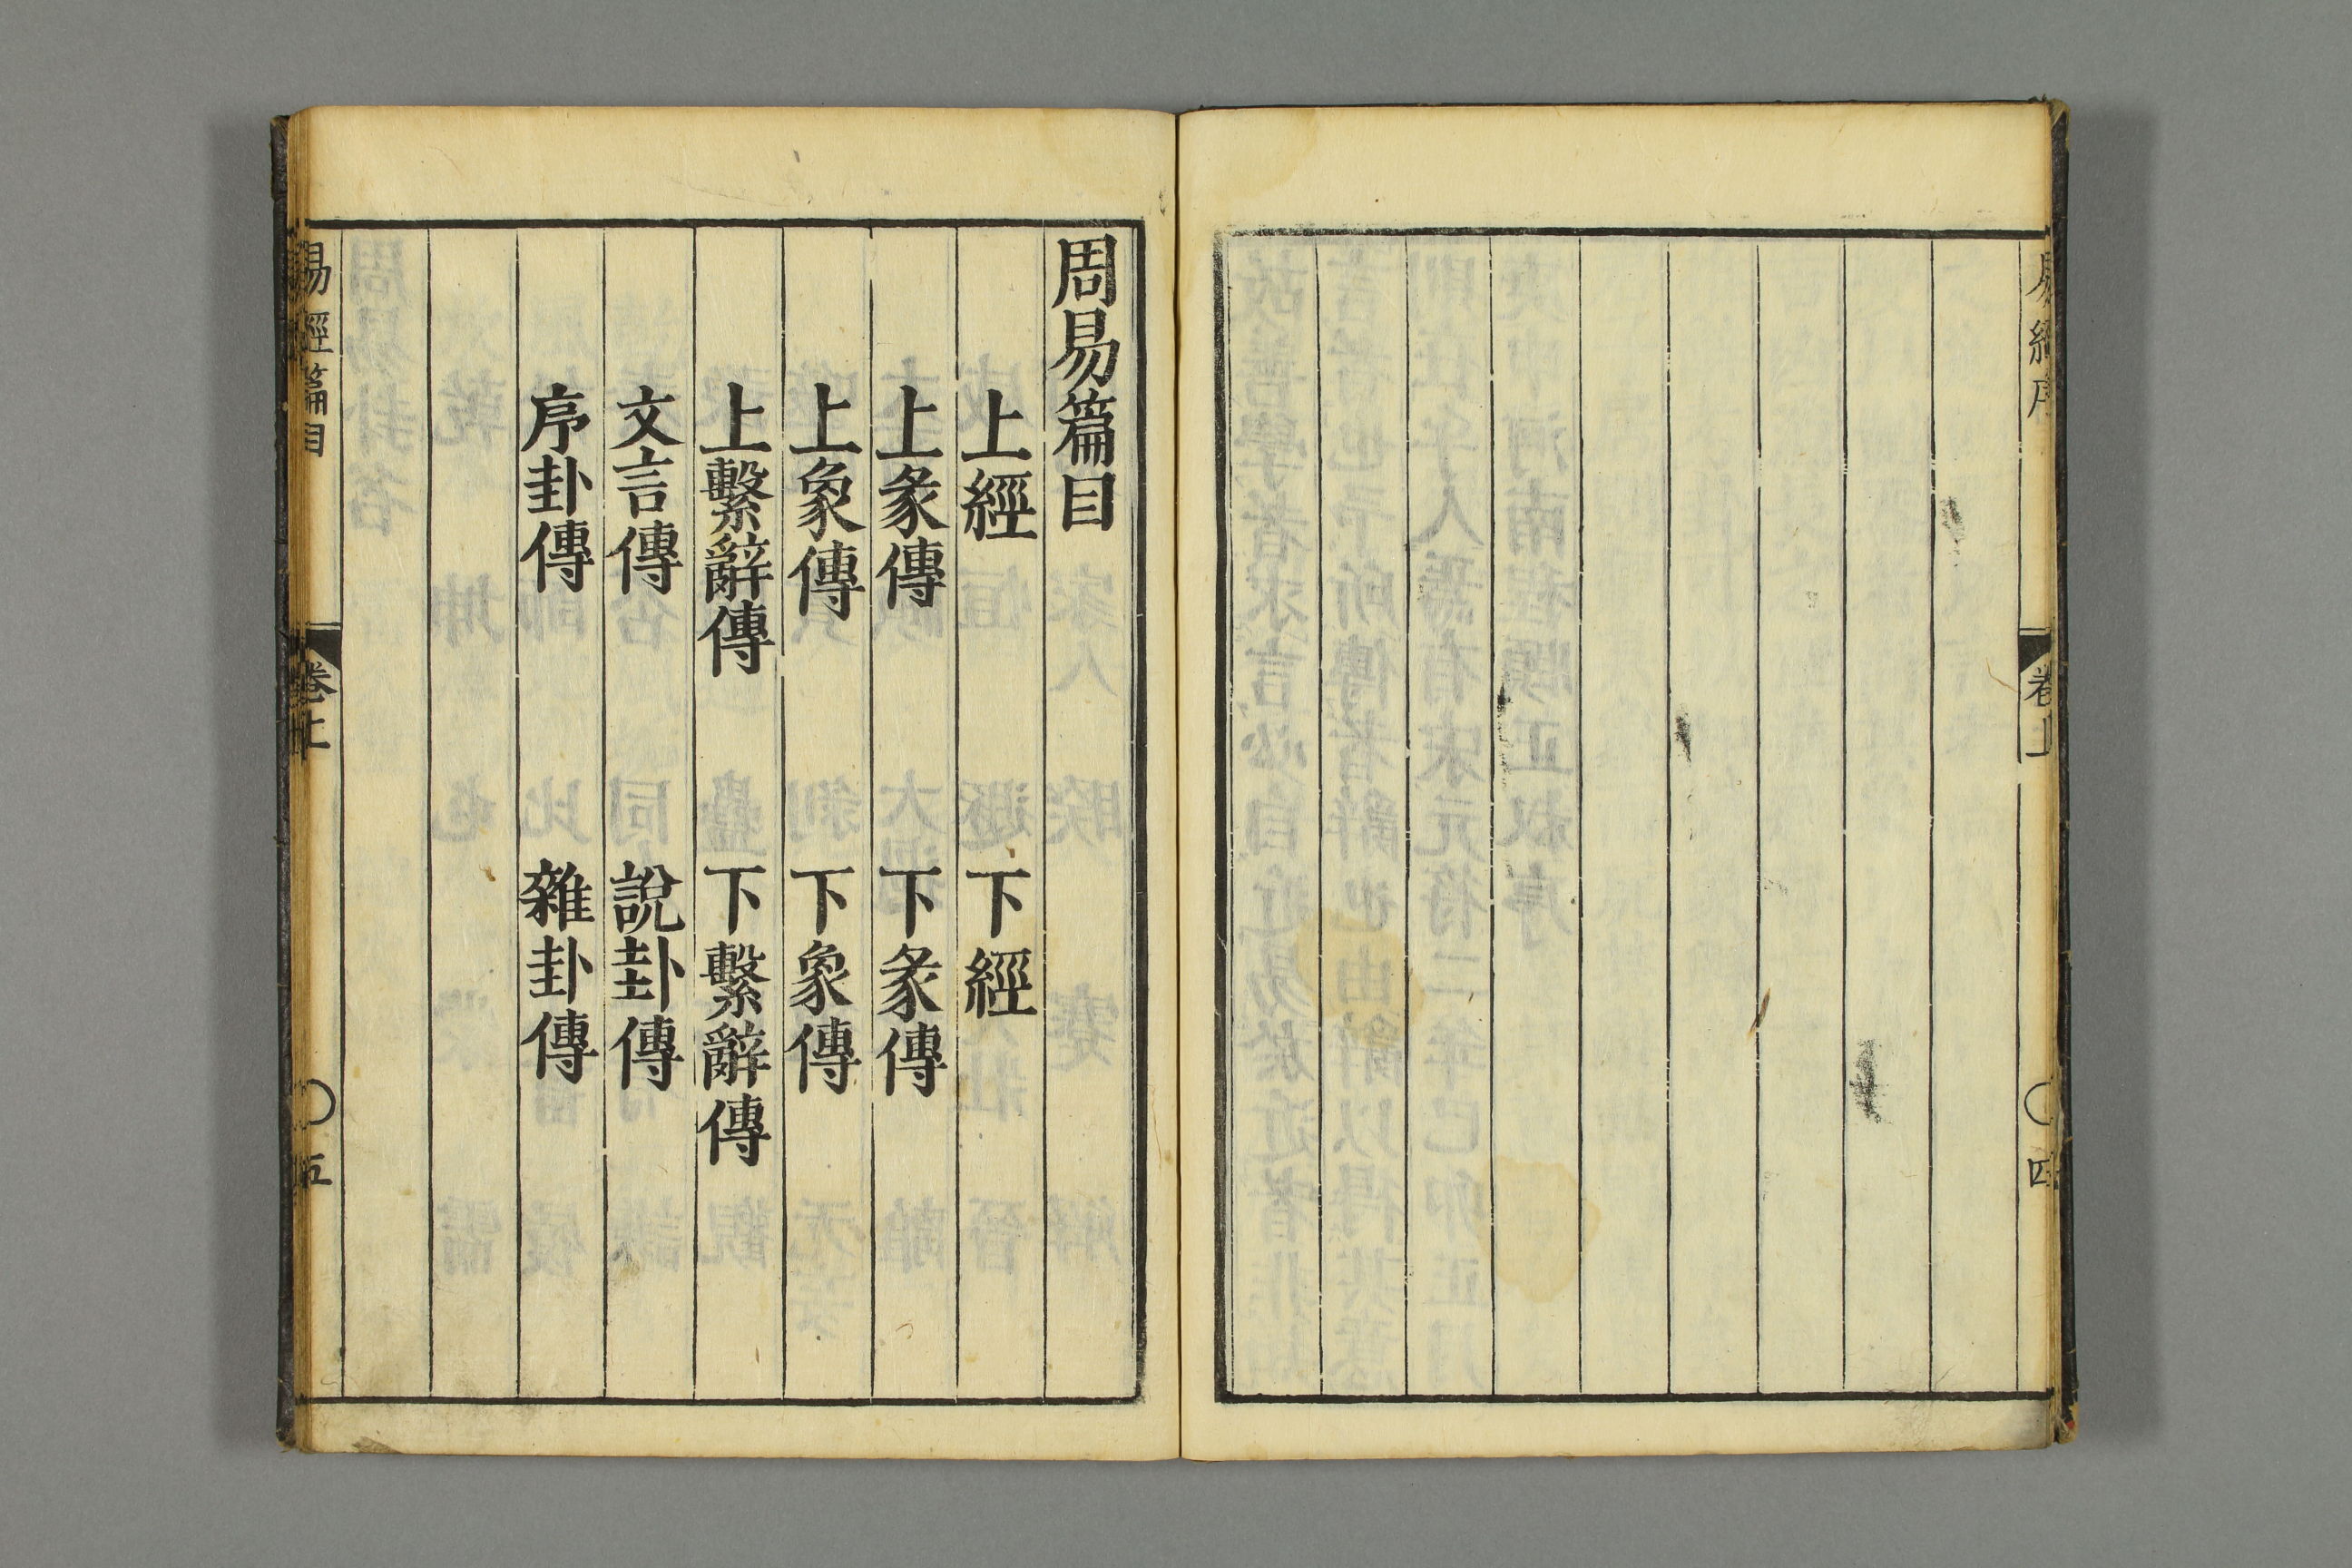 易經序
卷上
四
周易篇目
上經 下經
上彖傳 下彖傳
上象傳 下象傳
上繫辭傳 下繫辭傳
文言傳 說卦傳
序卦傳 雜卦傳
易經篇目
卷上
五